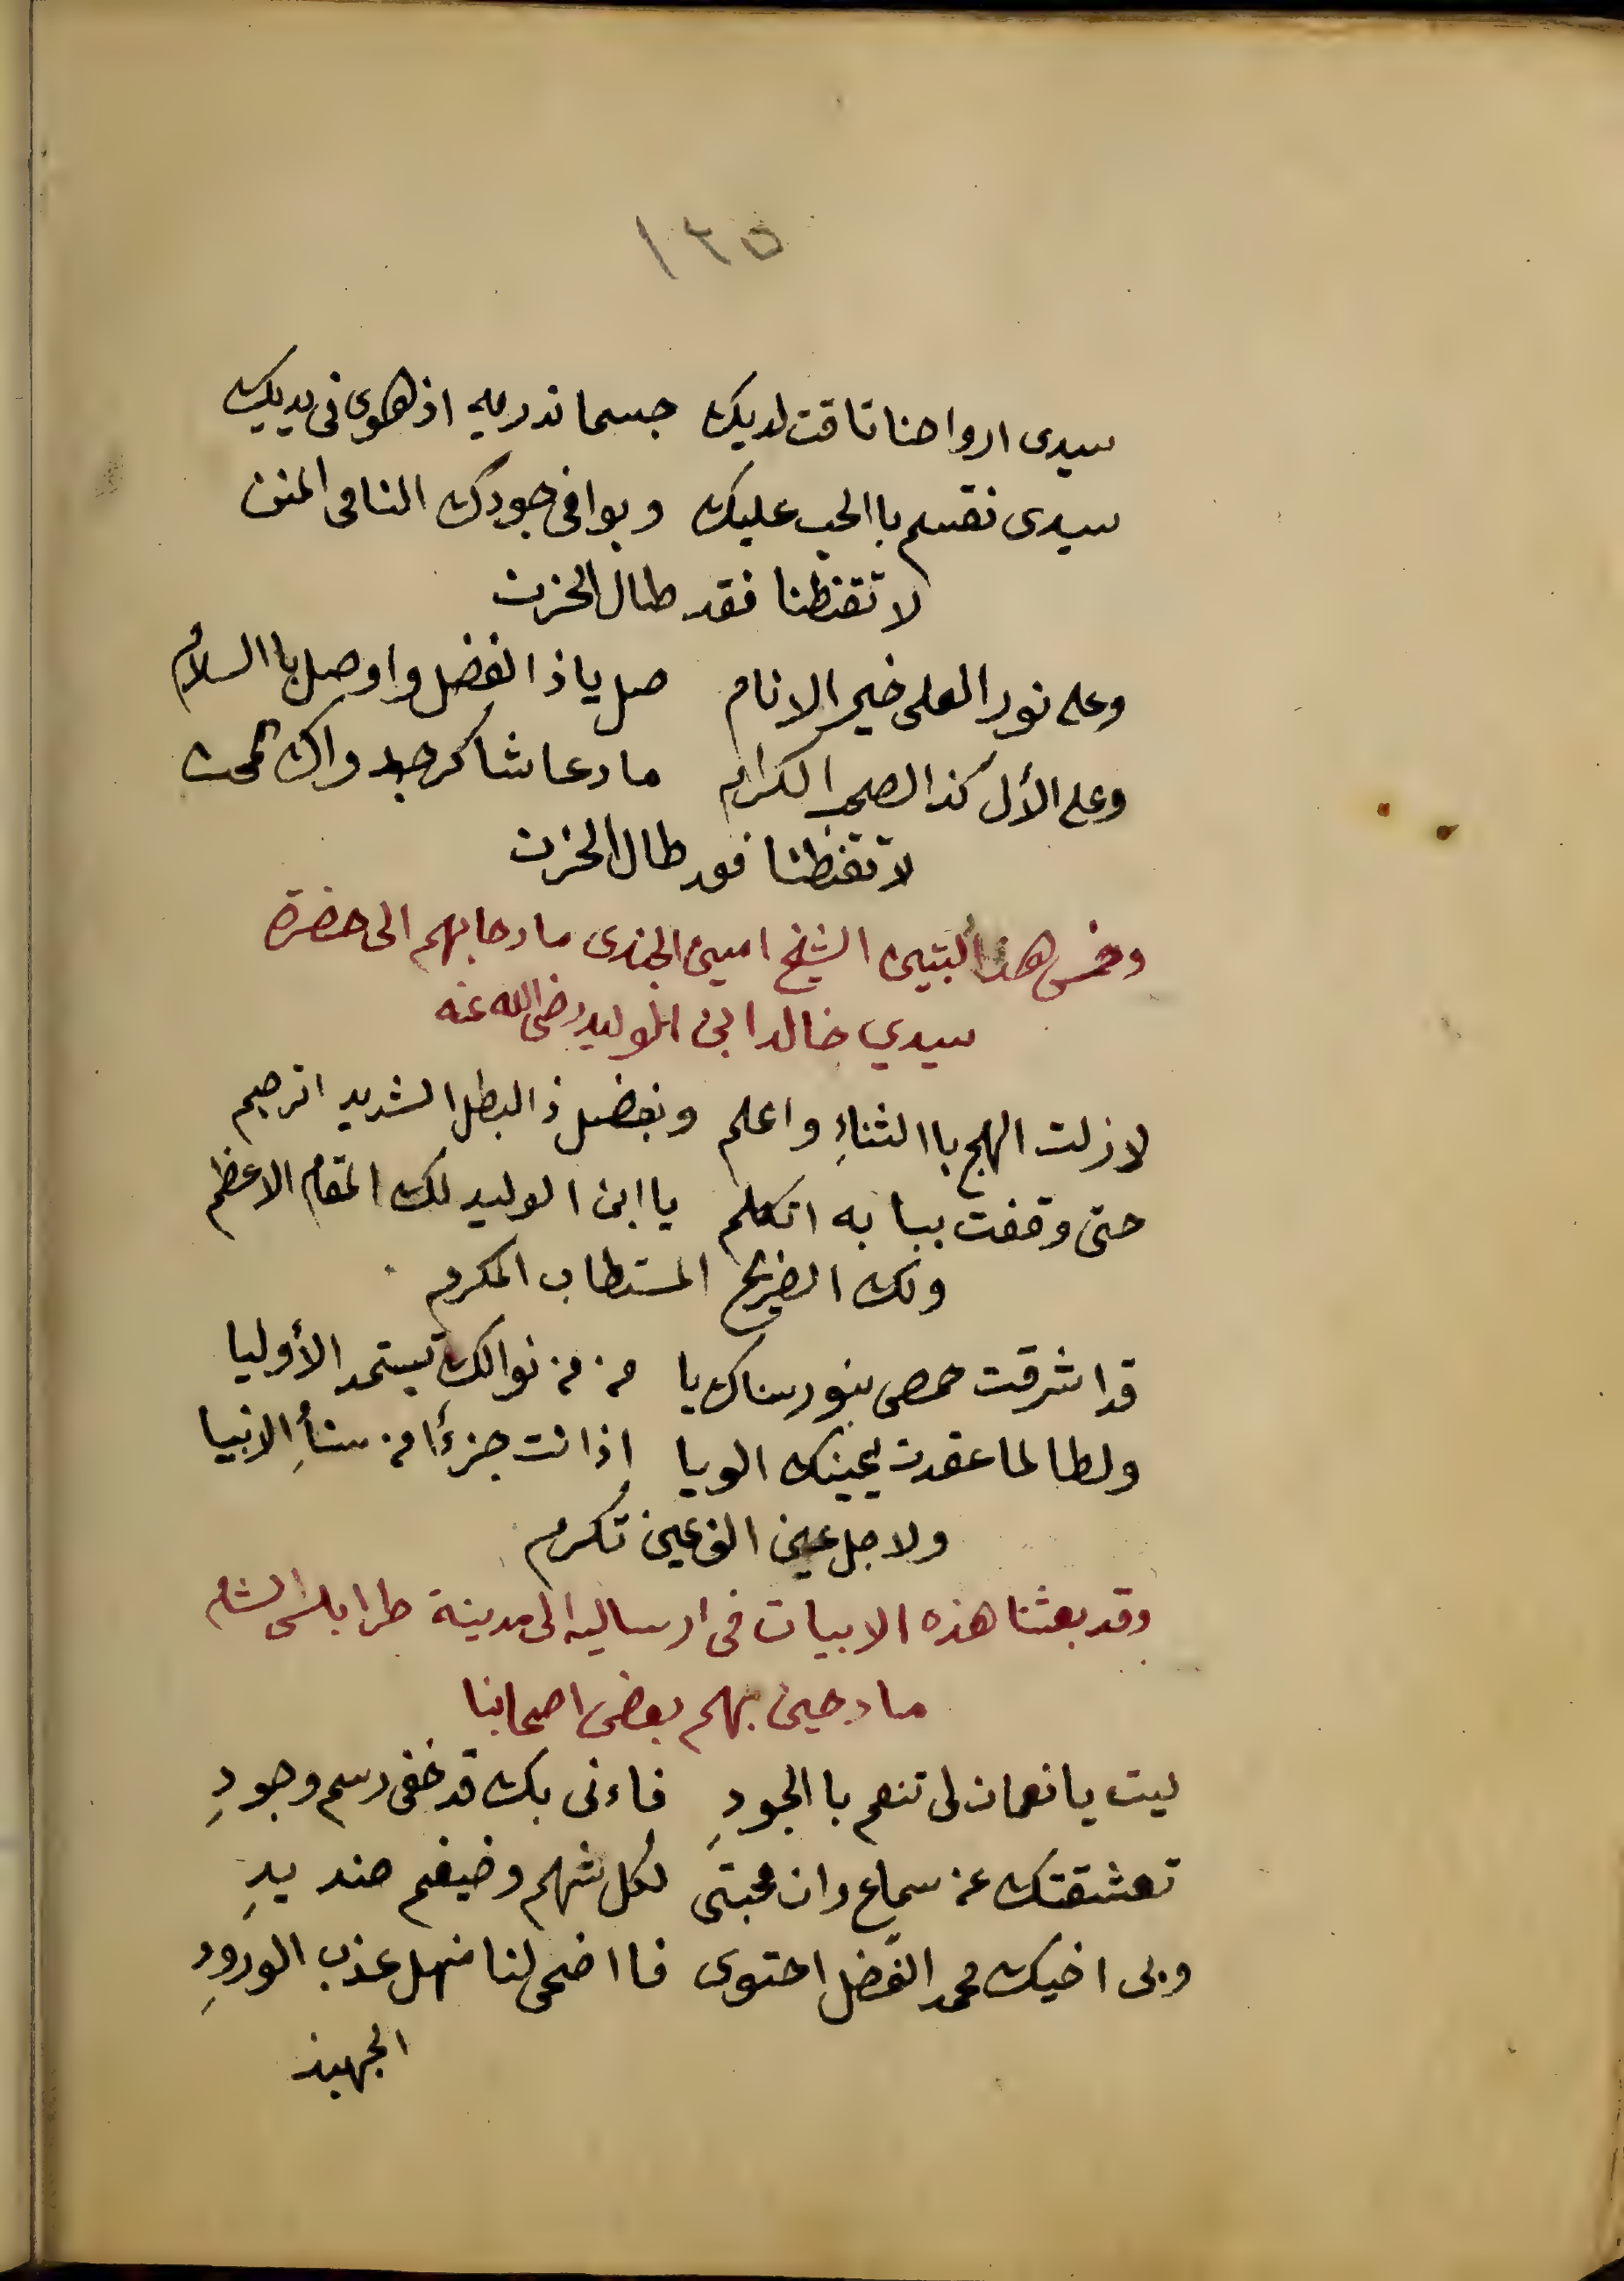 ١٢٥
سيدى ارواحنا تاقت لديك جسما ندريه اذ هوى فى يديك
سيدى نقسم باالحب عليك وبوافى جودك النامى المنن
لا تقنطنا فقد طال الحزن
وعلى نور العلى خير الانام صل ياذا الفضل واوصل باالسلام
وعلى الأل كذا الصحب الكرام مادعا شاكر
لا تقنطنا فقد طال الحزن
وخمس هذا البتين الشيخ امين الجندى مادحا بهم الى حضرة
سيدي خالد ابن الوليد رضى الله عنه
لا زلت الهج باالثناءِ واعلم وبفضل ذ البطل الشديد اترجم
حتى وقفت ببابه اتكلم ياابن الوليد لك المقام الاعظم
ولك الضريح المستطاب المكرم
قد اشرقت حمص بنور سناك يا من من نوالك تستمد الأوليا
ولطالما عقدت بيمينك الويا إذ انت جزءًا من سنأِ الانبيا
ولاجل عين الف عين تكرم
وقد بعثنا هذه الابيات فى ارساليه الى مدينة طرابلس الشام
مادحين بهم بعض اصحابنا
ليت يا نعمان لى تنعم باالجودِ فاءنى بك قد خفى رسم وجودِ
تعشقتك عن سماع وان محبتى لكل شهم وضيغم صنديدِ
وبى اخيك محمد الفضل احتوى فااضحى لنا منهل عذب الورودِ
الجهبذ